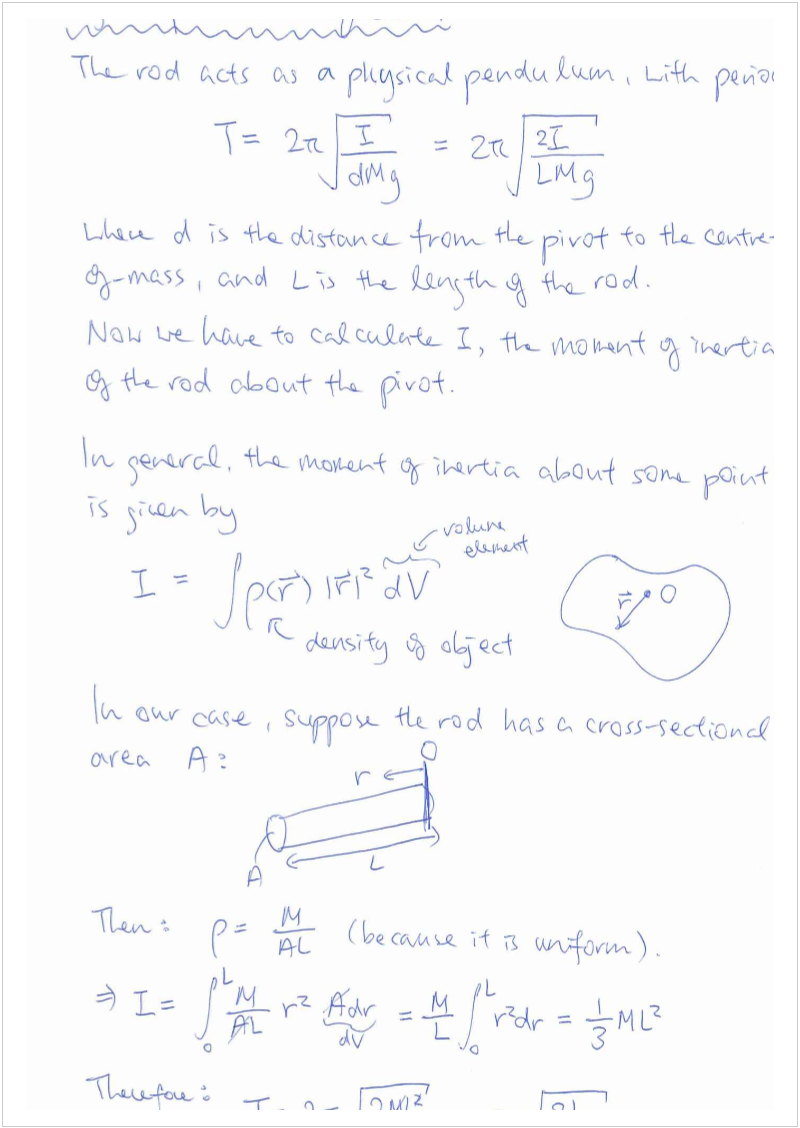 The rod acts as a physical pendulum, with perio
T = 2π √(I / dMg) = 2π √(2I / LMg)
where d is the distance from the pivot to the centre-
of-mass, and L is the length of the rod.
Now we have to calculate I, the moment of inertia
of the rod about the pivot.
In general, the moment of inertia about some point
is given by
volume
element
I = ∫ρ(r⃗) |r⃗|² dV
r⃗ O
density of object
In our case, suppose the rod has a cross-sectional
area A:
O
r
L
A
Then: ρ = M/AL (because it is uniform).
⇒ I = ∫₀ᴸ M/AL r² Adr = M/L ∫₀ᴸ r²dr = 1/3 ML²
dV
Therefore: